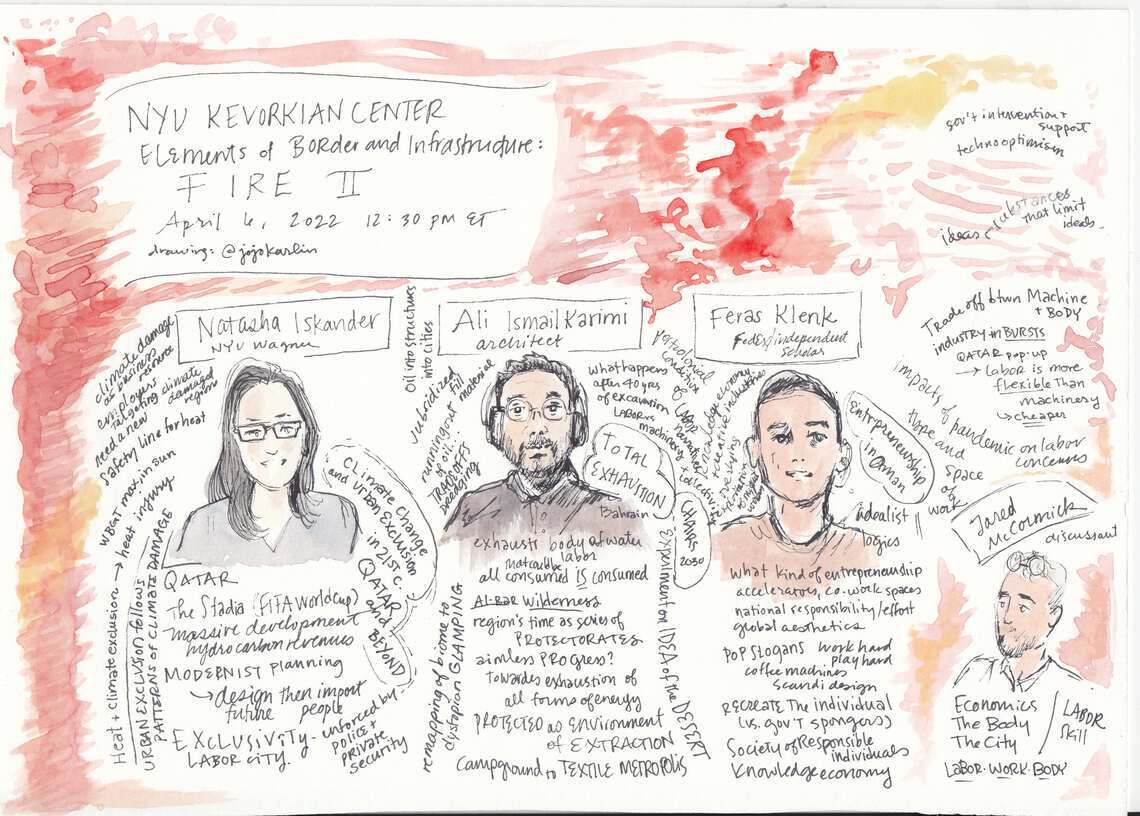 NYU KEVORKIAN CENTER
Elements of Border and Infrastructure:
FIRE II
April 6, 2022 12:30 pm ET
drawing: @jojokarlin
gov't intervention +
support
techno optimism
ideas - substances
that limit
ideas
Natasha Iskander
NYU Wagner
climate damage
as business
resource
employers
targeting climate
damaged
region
need a new
safety line for heat
WBGT mat. in sun
Heat + climate exclusion → heat injury
URBAN EXCLUSION follows
PATTERNS OF CLIMATE DAMAGE
CLimate Change
and urban Exclusion
in 21st c.
QATAR
and
BEYOND
QATAR
The Stadia (FIFA World cup)
massive development
hydrocarbon revenues
MODERNIST planning
→ design then import
future people
EXCLUSIVITY - enforced by
police +
private
security
LABOR CITY.
Oil into structures
into cities
Ali Ismail Karimi
architect
running out
of oil...
TRADEOFFS
fill
material
dredging
what happens
after 40 yrs
of excavation
LABOR vs
machinery
TOTAL
EXHAUSTION
Bahrain
exhausts body of water
labor
all consumed IS consumed
Al-Bar Wilderness
region's time as series of
PROTECTORATES
aimless PROgress?
towards exhaustion of
all forms of energy
PROTECTED as ENVIRONMENT
of EXTRACTION
Campground to TEXTILE METROPOLIS
remapping of biome to
dystopian GLAMPING
Experiment on IDEA of the DESERT
CHAIRS
2030
Feras Klenk
FedEx/independent
scholar
knowledge economy
creative industries
Entrepreneurship
in Oman
idealist
logics
what kind of entrepreneurship
accelerators, co-work spaces
national responsibility/effort
global aesthetics
POP Slogans work hard
play hard
coffee machines
scandi design
RECREATE The individual
(vs. gov't spongers)
Society of Responsible
individuals
knowledge economy
Trade off btwn Machine
+ BODY
industry in BURSTS
QATAR pop-up
→ labor is more
flexible Than
machinery
↳ cheaper
impacts of pandemic on labor
type and concerns
space
of
work
Jared
McCormick
discussant
Economics
The Body
The City
LABOR
Skill
LABOR·WORK·BODY